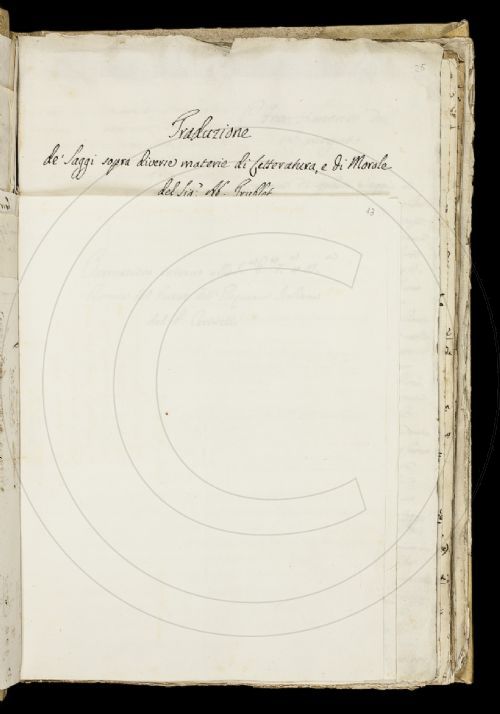 25
Traduzione
de' Saggi sopra diverse materie di Letteratura, e di Morale
del Sig.r Ab. Trublet
13